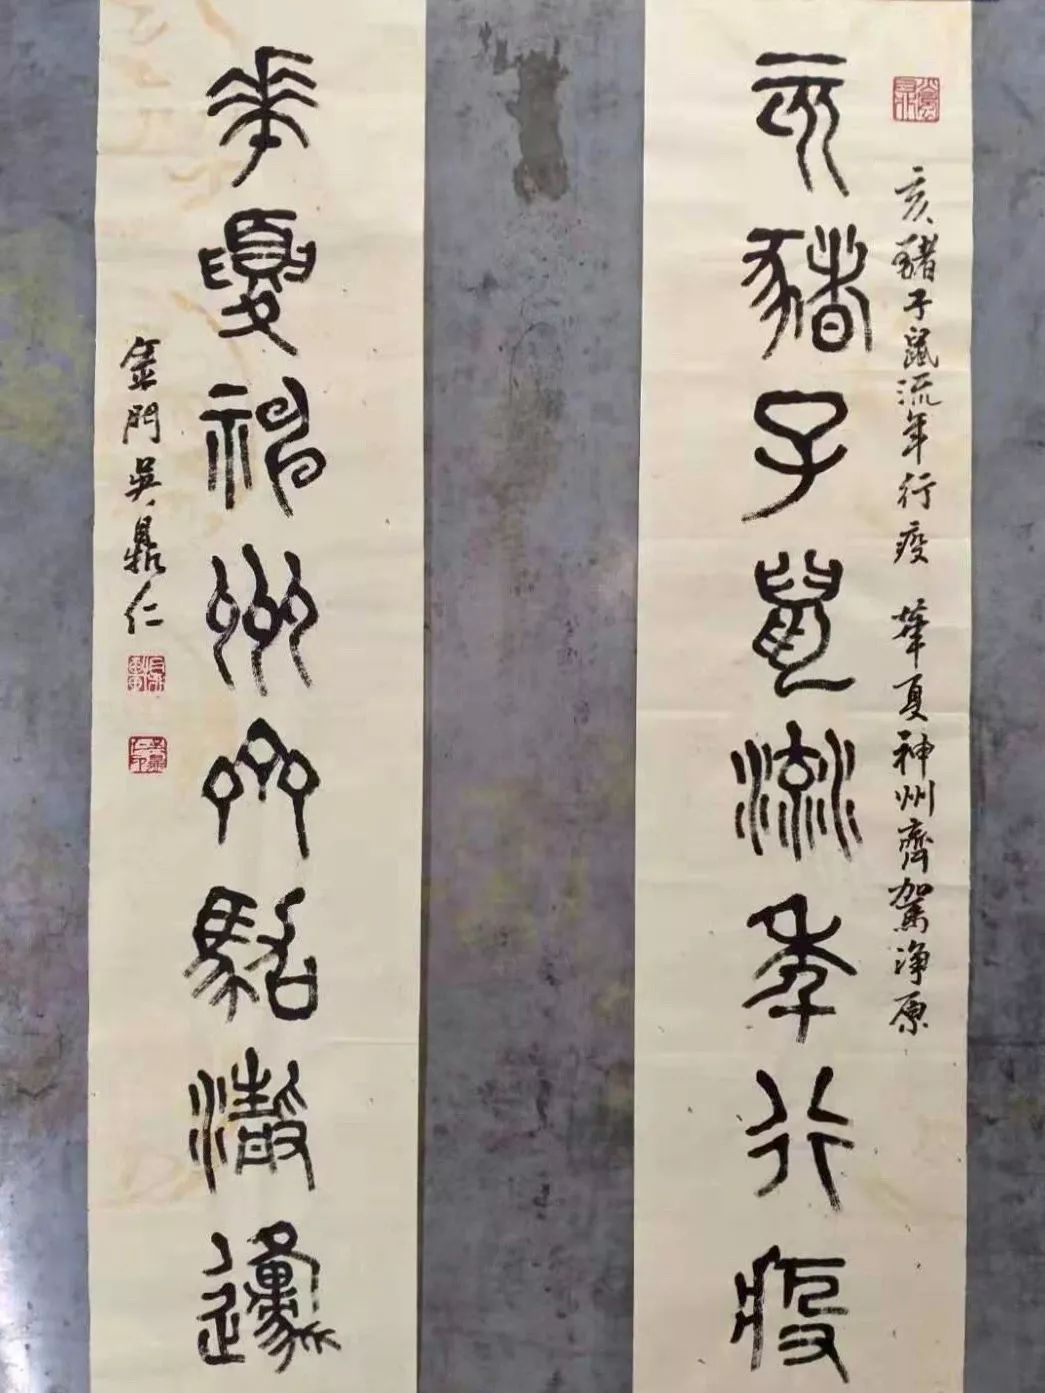 亥豬子鼠流年行疫
亥豬子鼠流年行疫 華夏神州齊駕淨原
華夏神州齊駕淨原
金門吳鼎仁